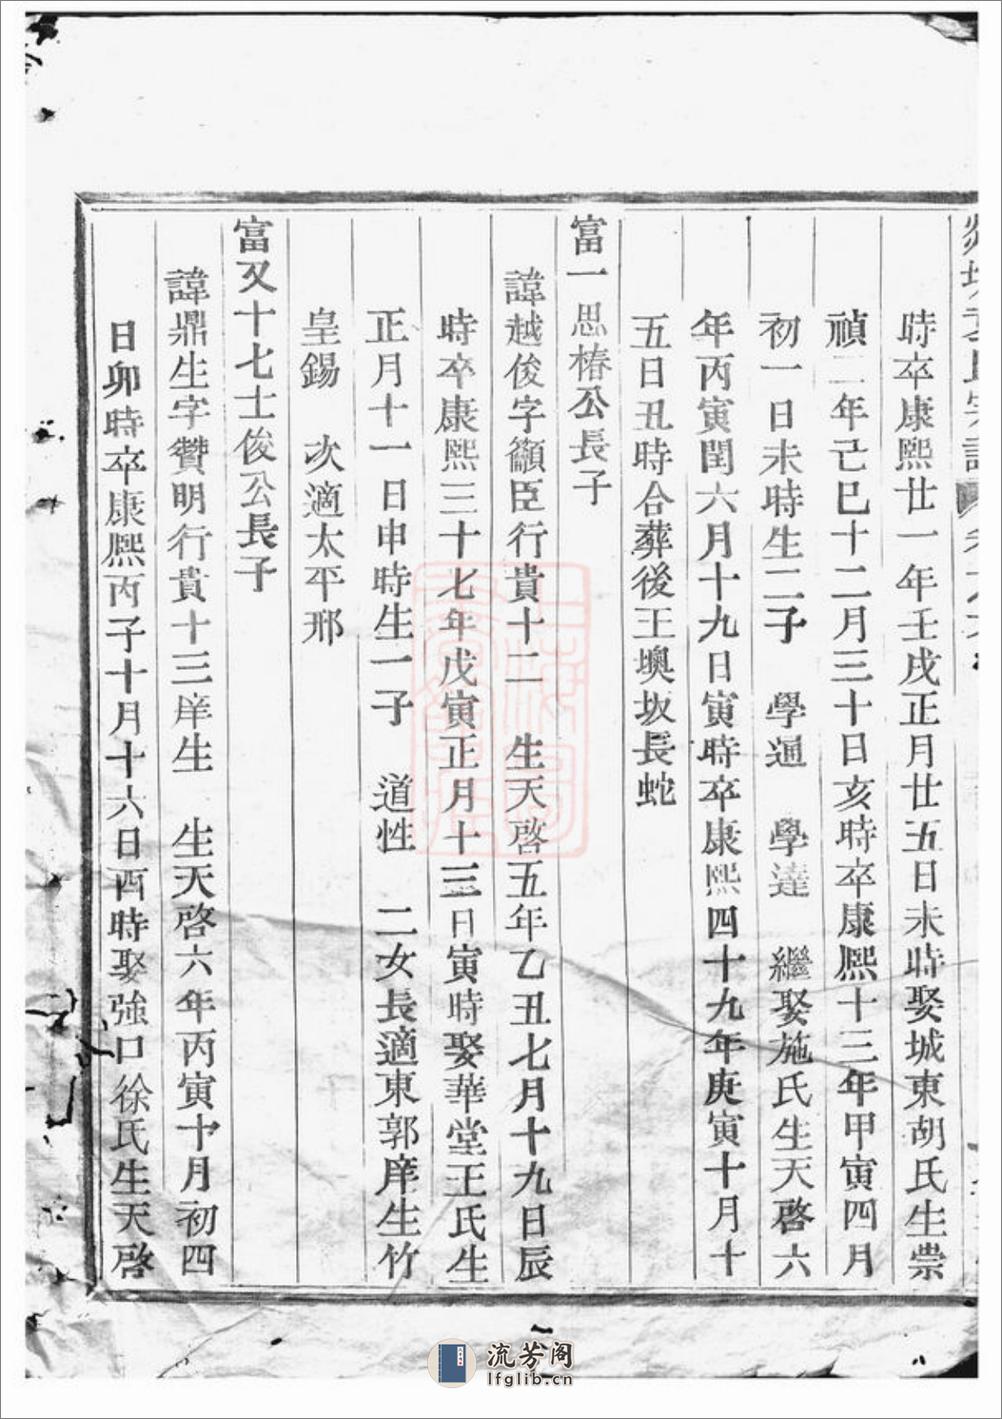 時卒康熙廿一年壬戌正月廿五日未時娶城東胡氏生崇
禎二年己巳十二月三十日亥時卒康熙十三年甲寅四月
初一日未時生二子 學通 學達 繼娶施氏生天啓六
年丙寅閏六月十九日寅時卒康熙四十九年庚寅十月十
五日丑時合葬後王墺坂長蛇
富一思椿公長子
諱越俊字籲臣行貴十二 生天啓五年乙丑七月十九日辰
時卒康熙三十七年戊寅正月十三日寅時娶華堂王氏生
正月十一日申時生一子 道性 二女長適東郭庠生竹
皇錫 次適太平邢
富又十七士俊公長子
諱鼎生字贊明行貴十三庠生 生天啓六年丙寅十月初四
日卯時卒康熙丙子十月十六日酉時娶強口徐氏生天啓
流芳阁
lfglib.cn